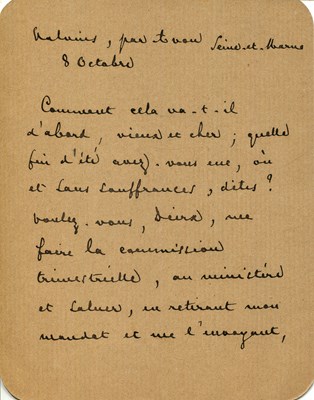 Valvins, par Avon Seine-et-Marne
8 Octobre
Comment cela va-t-il
d'abord, vieux et cher; quelle
fin d'été avez-vous eue, où
et sans souffrances, dites?
Voulez-vous, Dierx, me
faire la commission
trimestrielle, au ministère
et saluer, en retirant mon
mandat et me l'envoyant,